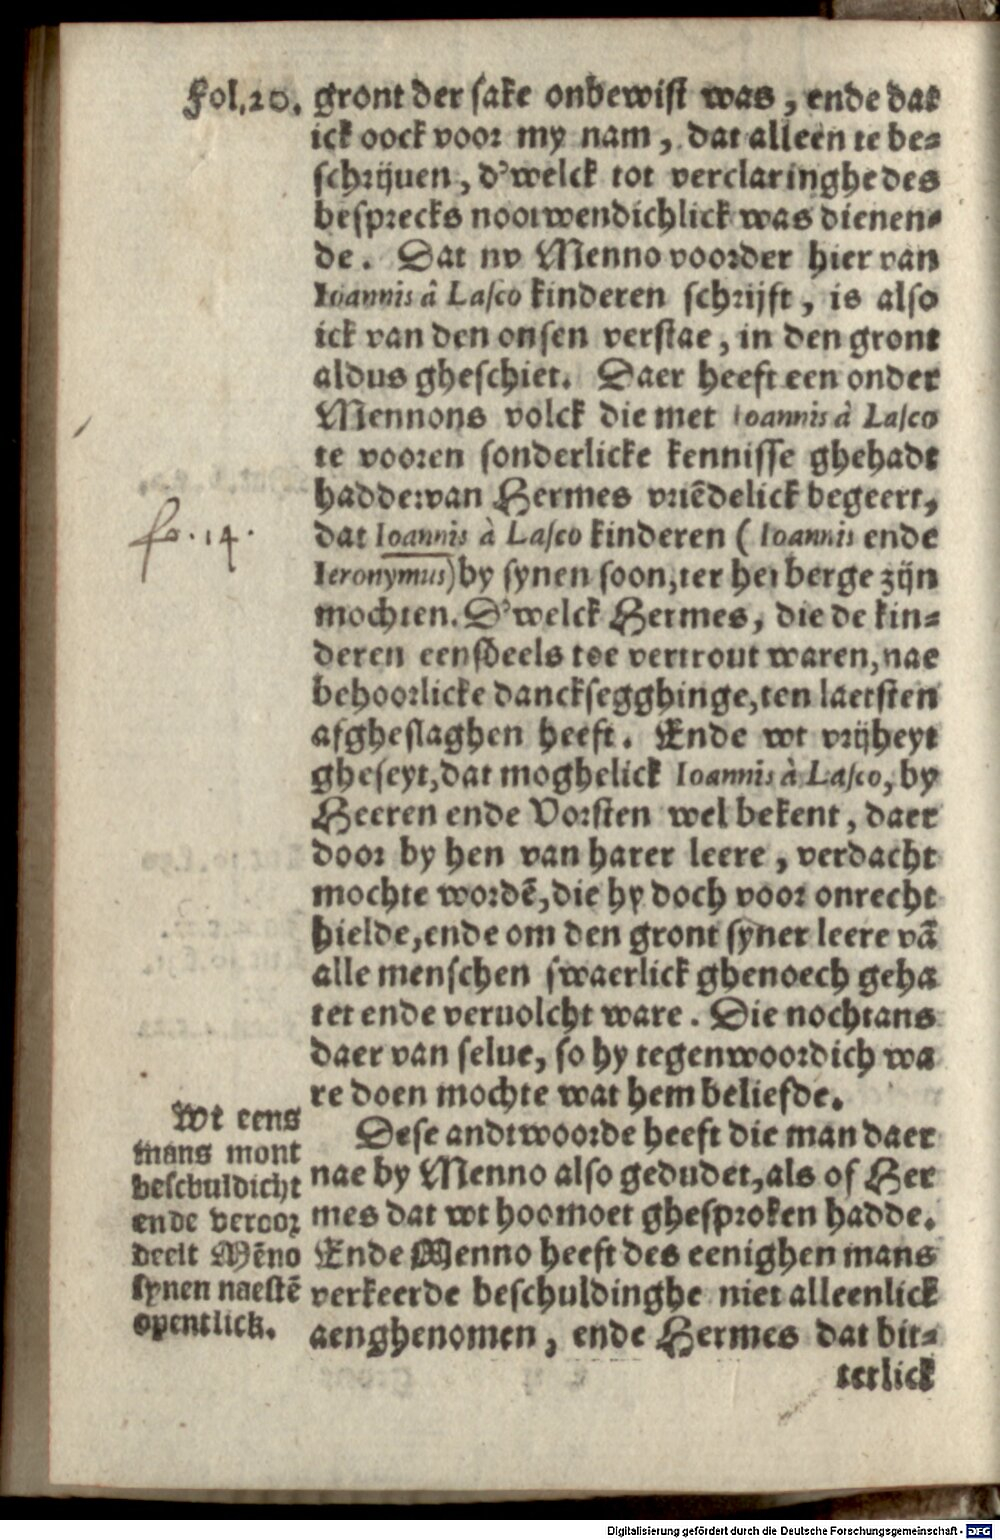 Fol.20.
gront der sake onbewist was, ende dat
ick oock voor my nam, dat alleen te be=
schrijuen, d'welck tot verclaringhe des
besprecks nootwendichlick was dienen=
de. Dat nv Menno voorder hier van
Ioannis â Lasco kinderen schrijft, is also
ick van den onsen verstae, in den gront
aldus gheschiet. Daer heeft een onder
Mennons volck die met Ioannis à Lasco
te vooren sonderlicke kennisse ghehadt
hadde: van Hermes vriēdelick begeert,
fo. 14.
dat Ioannis à Lasco kinderen (Ioannis ende
Ieronymus) by synen soon, ter herberge zijn
mochten. D'welck Hermes, die de kin=
deren eensdeels toe vertrout waren, nae
behoorlicke dancksegghinge, ten laetsten
afgheslaghen heeft. Ende wt vrijheyt
gheseyt, dat moghelick Ioannis à Lasco, by
Heeren ende Vorsten wel bekent, daer
door by hen van harer leere, verdacht
mochte wordē, die hy doch voor onrecht
hielde, ende om den gront syner leere vā
alle menschen swaerlick ghenoech geha
tet ende veruolcht ware. Die nochtans
daer van selue, so hy tegenwoordich wa
re doen mochte wat hem beliefde.
Dese andtwoorde heeft die man daer
nae by Menno also gedudet, als of Her
mes dat wt hoomoet ghesproken hadde.
Ende Menno heeft des eenighen mans
verkeerde beschuldinghe niet alleenlick
aenghenomen, ende Hermes dat bit=
terlick
Wt eens
mans mont
beschuldicht
ende veroor
deelt Mēno
synen naestē
opentlick.
Digitalisierung gefördert durch die Deutsche Forschungsgemeinschaft - DFG